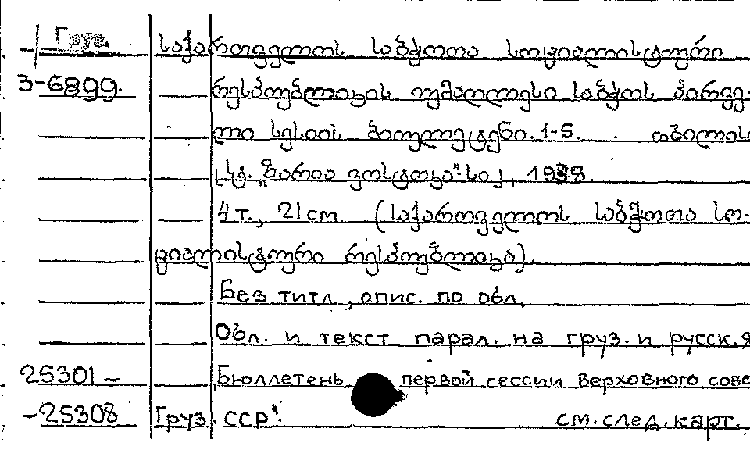 Груз. საქართველოს საბჭოთა სოციალისტური
3-6899. რესპუბლიკის უმაღლესი საბჭოს პირვე-
ლი სესიის ბიულეტენი. 1-5. თბილისი
სტ. „ზარია ვოსტოკა"-სა], 1938.
4 т., 21 см. (საქართველოს საბჭოთა სო-
ციალისტური რესპუბლიკა).
Без титл., опис. по обл.
Обл. и текст парал. на груз. и русск. я
25301 – Бюллетень первой сессии Верховного сове
-25308 Груз. ССР". см. след. карт.